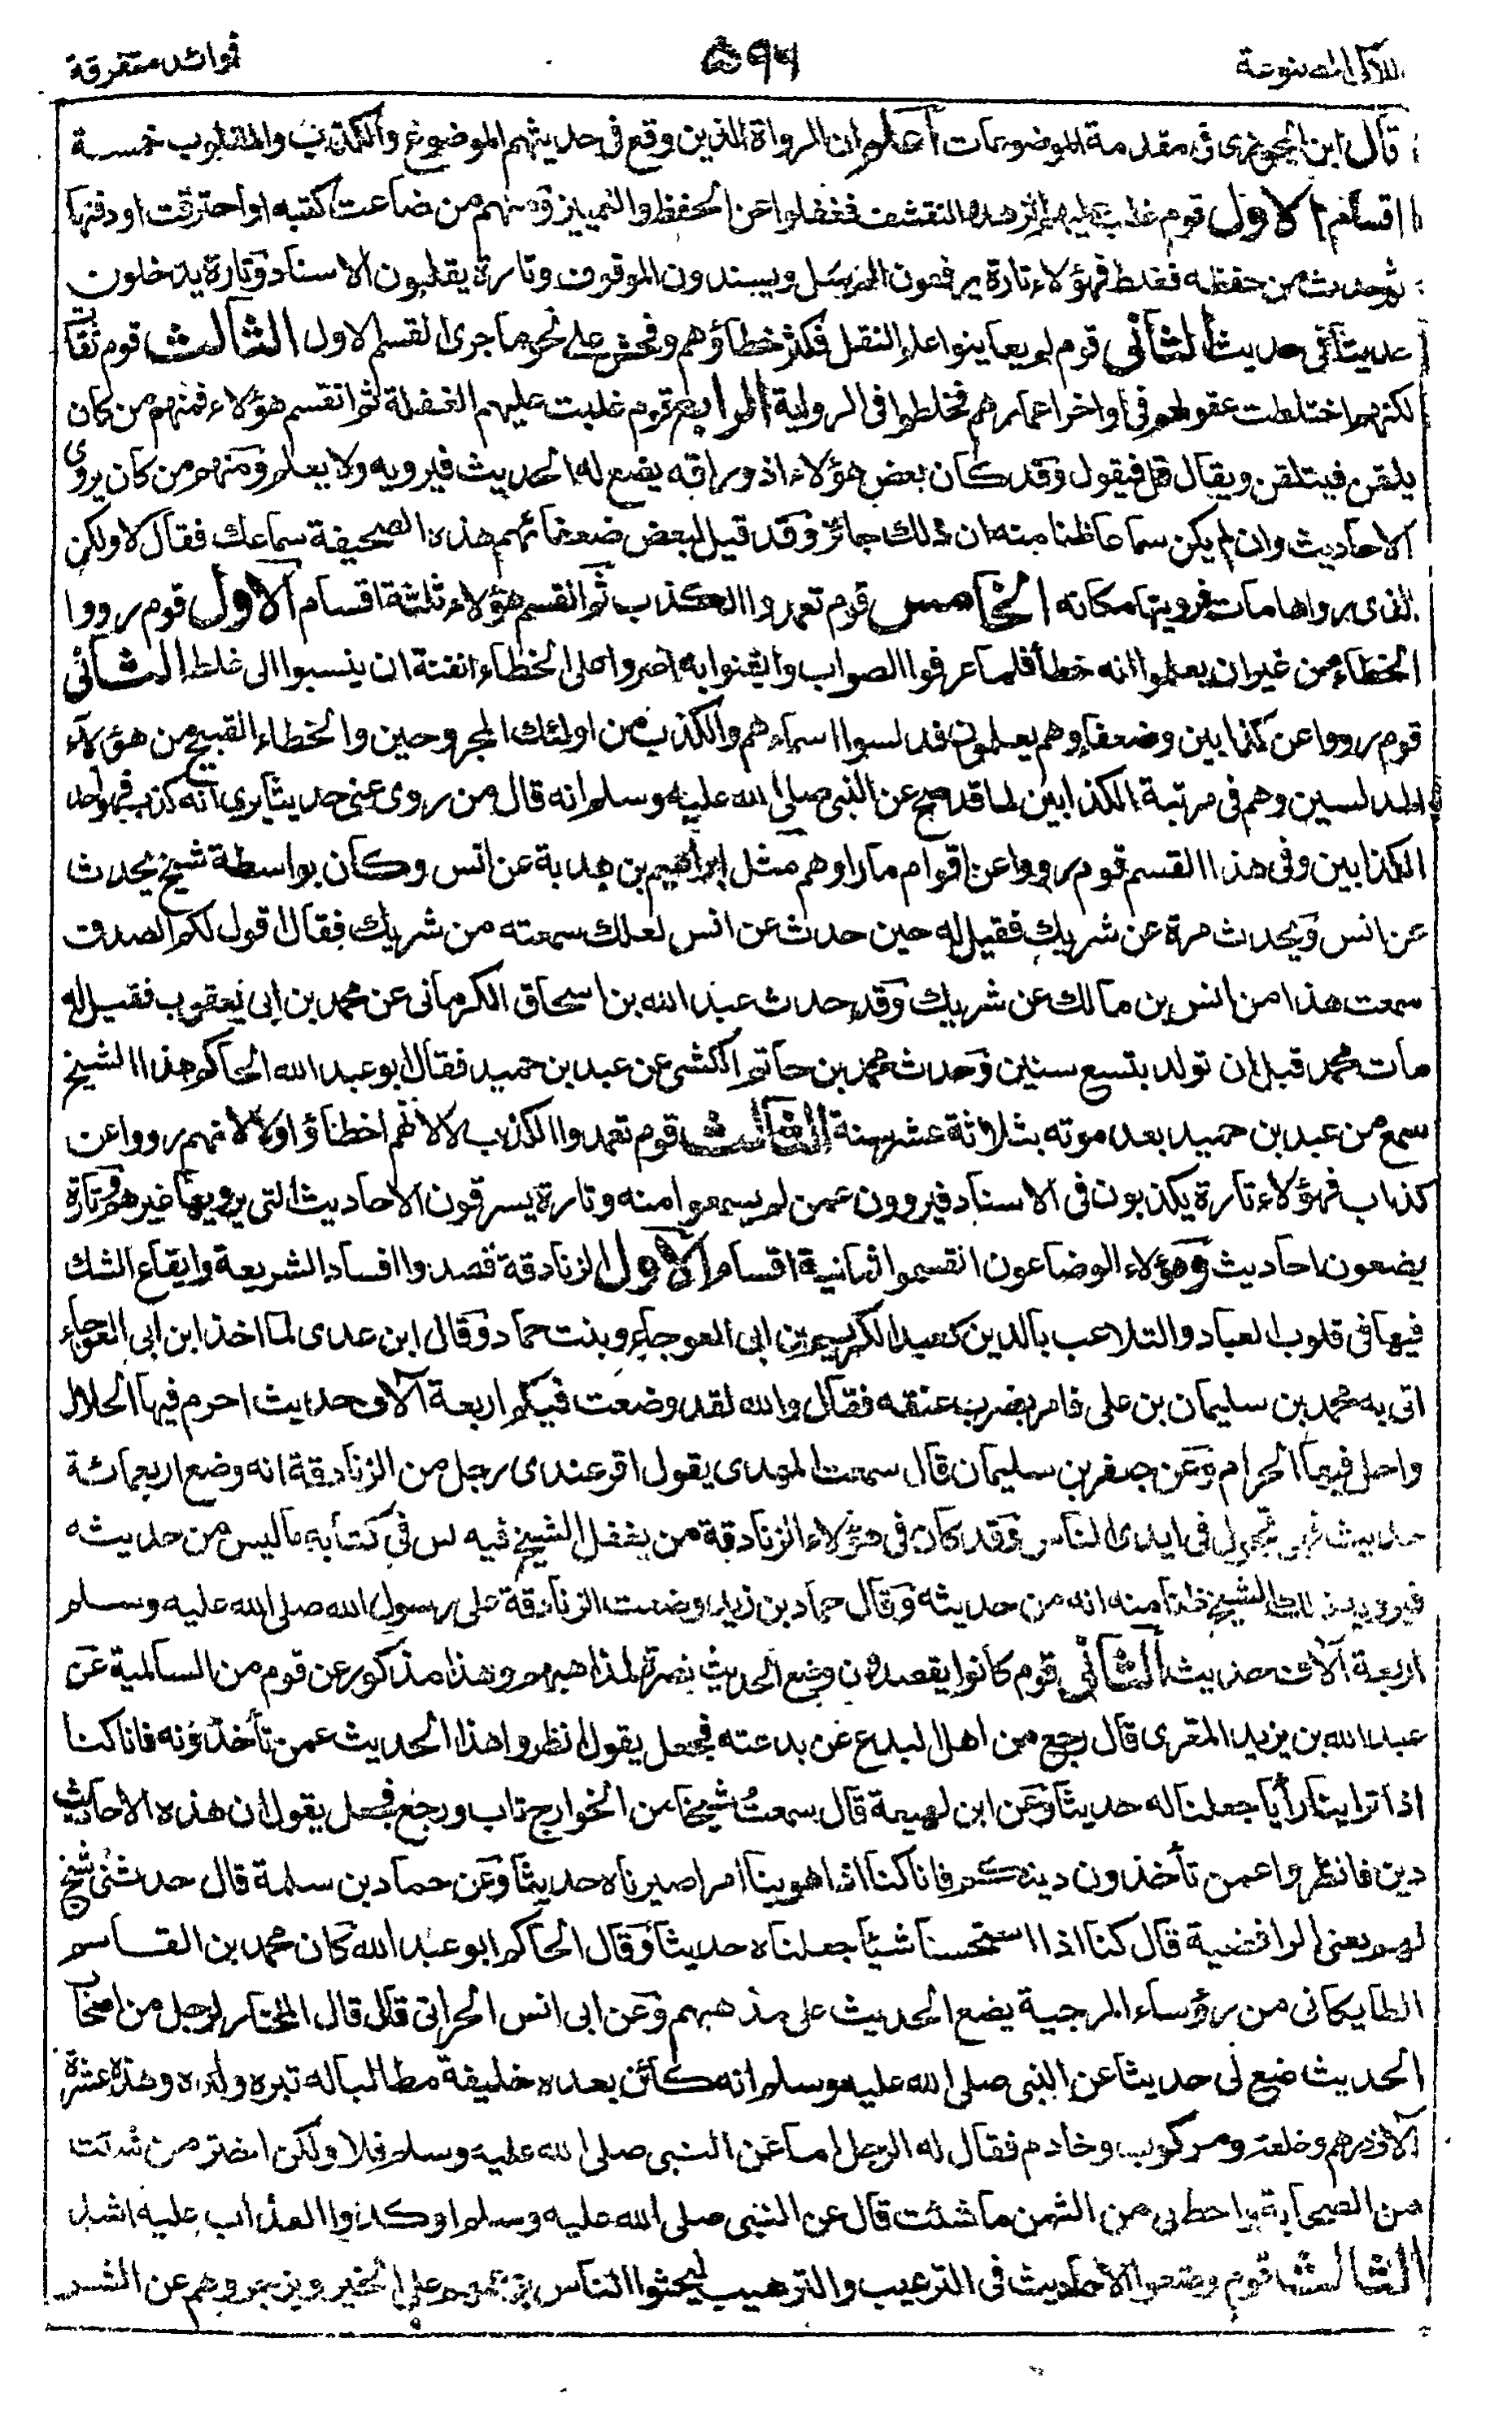 اللآلى المصنوعة ۵۹۹ فوائد متفرقة
قال ابن الجوزى فى مقدمة الموضوعات اعلم ان الرواة الذين وقع فى حديثهم الموضوع والكذب والمقلوب خمسة
اقسام الاول قوم غلب عليهم الزهد والتقشف فغفلوا عن الحفظ والتمييز ومنهم من ضاعت كتبه او احترقت او دفنها
ثم حدث من حفظه فغلط فهؤلاء تارة يرفعون المرسل ويسندون الموقوف وتارة يقلبون الاسناد وتارة يدخلون
حديثا فى حديث الثانى قوم لم يعاينوا على النقل فكثر خطاؤهم وفحش على نحو ما جرى القسم الاول الثالث قوم ثقات
لكنهم اختلطت عقولهم فى اواخر اعمارهم فخلطوا فى الرواية الرابع قوم غلبت عليهم الغفلة ثم انقسم هؤلاء فمنهم من كان
يلقن فيتلقن ويقال قل فيقول وقد كان بعض هؤلاء اذ وراقه يضع له الحديث فيرويه ولا يعلم ومنهم من كان يروى
الاحاديث وان لم يكن سماعا ظنا منه ان ذلك جائز وقد قيل لبعض ضعفائهم هذه الصحيفة سماعك فقال لا ولكن
الذى رواها مات فرويتها مكانه الخامس قوم تعمدوا الكذب ثم انقسم هؤلاء ثلثة اقسام الاول قوم رووا
الخطاء من غير ان يعلموا انه خطأ فلما عرفوا الصواب وايقنوا به اصروا على الخطاء انفة ان ينسبوا الى غلط الثانى
قوم رووا عن كذابين وضعفاء وهم يعلمون فدلسوا اسماءهم والكذب من اولئك المجروحين والخطاء القبيح من هؤلاء
المدلسين وهم فى مرتبة الكذابين لما قد صح عن النبى صلى الله عليه وسلم انه قال من روى عنى حديثا يرى انه كذب فهو احد
الكذابين وفى هذا القسم قوم رووا عن اقوام ما راوهم مثل ابراهيم بن هدبة عن انس وكان بواسطة شيخ يحدث
عن انس ويحدث مرة عن شريك فقيل له حين حدث عن انس لعلك سمعته من شريك فقال اقول لكم الصدق
سمعت هذا من انس بن مالك عن شريك وقد حدث عبد الله بن اسحاق الكرمانى عن محمد بن ابى يعقوب فقيل له
مات محمد قبل ان تولد بتسع سنين وحدث محمد بن حاتم الكشى عن عبد بن حميد فقال ابو عبد الله الحاكم هذا الشيخ
سمع من عبد بن حميد بعد موته بثلاثة عشر سنة الثالث قوم تعمدوا الكذب لا لانهم اخطئاؤا ولا لانهم رووا عن
كذاب فهؤلاء تارة يكذبون فى الاسناد فيروون عمن لم يسمعوا منه وتارة يسرقون الاحاديث التى يرويها غيرهم وتارة
يضعون احاديث وهؤلاء الوضاعون انقسموا ثمانية اقسام الاول الزنادقة قصدوا افساد الشريعة وايقاع الشك
فيها فى قلوب العباد والتلاعب بالدين كعبد الكريم بن ابى العوجاء وبنت حماد وقال ابن عدى لما اخذ ابن ابى العوجاء
اتى به محمد بن سليمان بن على فامر بضرب عنقه فقال والله لقد وضعت فيكم اربعة آلاف حديث احرم فيها الحلال
واحل فيها الحرام وعن جعفر بن سليمان قال سمعت المهدى يقول اقر عندى رجل من الزنادقة انه وضع اربعمائة
حديث فهى تجول فى ايدى الناس وقد كان فى هؤلاء الزنادقة من يغفل الشيخ فيدس فى كتابه ما ليس من حديثه
فيرويه ذلك الشيخ ظنا منه انه من حديثه وقال حماد بن زيد وضعت الزنادقة على رسول الله صلى الله عليه وسلم
اربعة آلاف حديث الثانى قوم كانوا يقصدون وضع الحديث نصرة لمذاهبهم وهذا مذكور عن قوم من السالمية عن
عبد الله بن يزيد المقرى قال رجع من اهل البدع عن بدعته فجعل يقول انظروا هذا الحديث عمن تأخذونه فانا كنا
اذا تراينا رأيا جعلنا له حديثا وعن ابن لهيعة قال سمعت شيخا من الخوارج تاب ورجع فجعل يقول ان هذه الاحاديث
دين فانظروا عمن تأخذون دينكم فانا كنا اذا هوينا امرا صيرناه حديثا وعن حماد بن سلمة قال حدثنى شيخ
لهم يعنى الرافضية قال كنا اذا استحسنا شيئا جعلناه حديثا وقال الحاكم ابو عبد الله كان محمد بن القاسم
الطايكانى من رؤساء المرجية يضع الحديث على مذهبهم وعن ابى انس الحرانى قال قال المختار لرجل من اصحاب
الحديث ضع لى حديثا عن النبى صلى الله عليه وسلم انه كائن بعده خليفة مطالبا له تبره ولده وهذه عشرة
آلاف درهم وخلعة ومركوب وخادم فقال له الرجل اما عن النبى صلى الله عليه وسلم فلا ولكن اختر من شئت
من الصحابة واحط لى من الثمن ما شئت قال عن النبى صلى الله عليه وسلم اوكد والعذاب عليه اشد
الثالث قوم وضعوا الاحاديث فى الترغيب والترهيب ليحثوا الناس بزعمهم على الخير ويزجروهم عن الشر